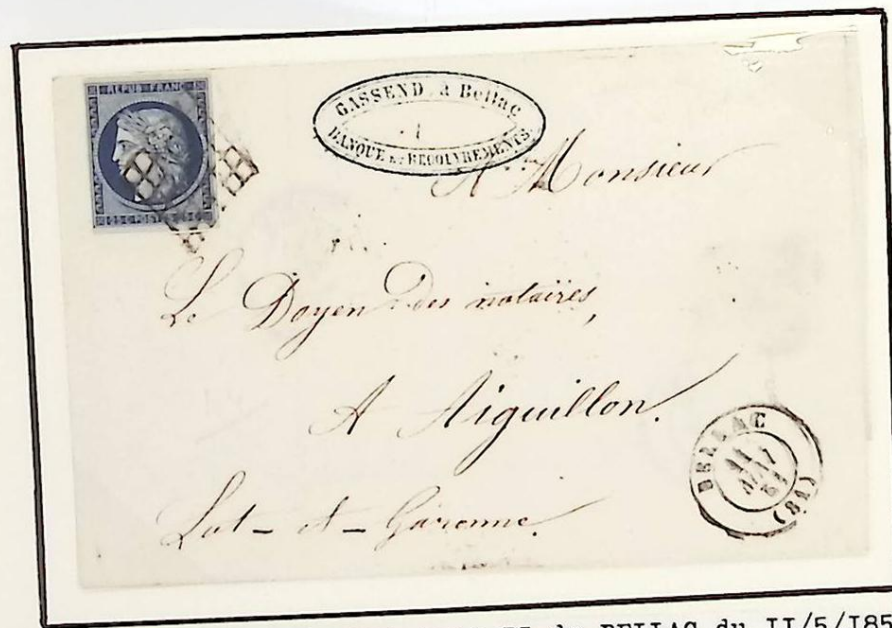 REPUB FRANC
25 C POSTES 25 C
GASSEND, à Bellac
BANQUE ET RECOUVREMENTS
A Monsieur
Le Doyen des notaires,
A Aiguillon.
Lot-et-Garonne.
BELLAC
11
MAI
51
(81)
BELLAC du II/5/I85